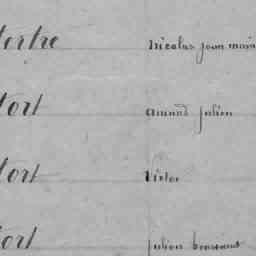 tertre Nicolas jean marie
tort amand julien
tort victor
tort julien